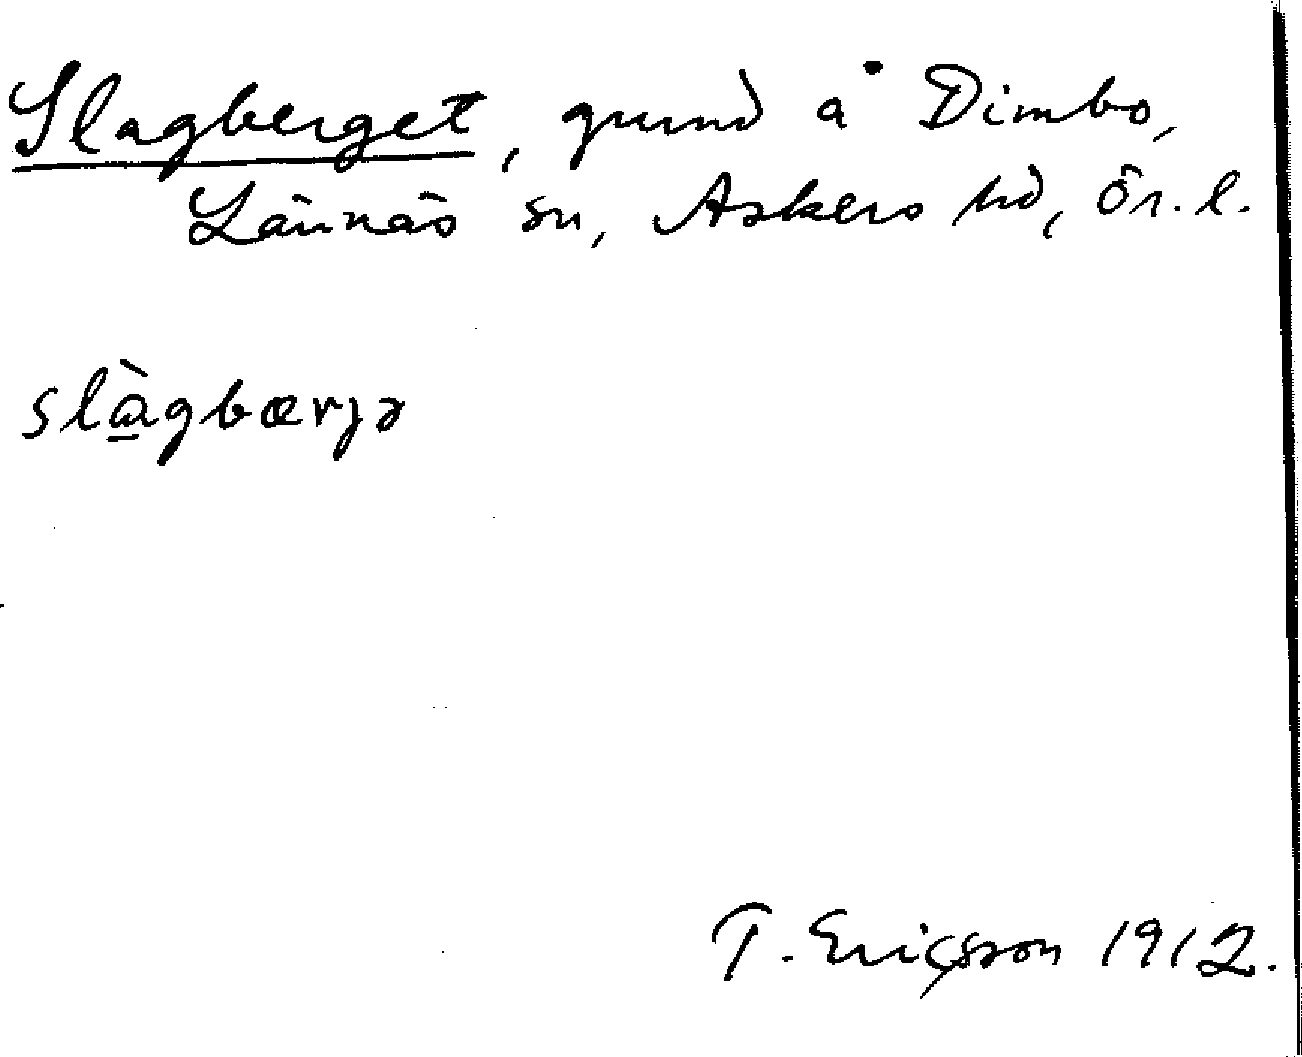 Slagberget, grund å Dimbo,
Lännäs sn, Askers hd, Ör. l.
slàgbærjə
T. Ericsson 1912.